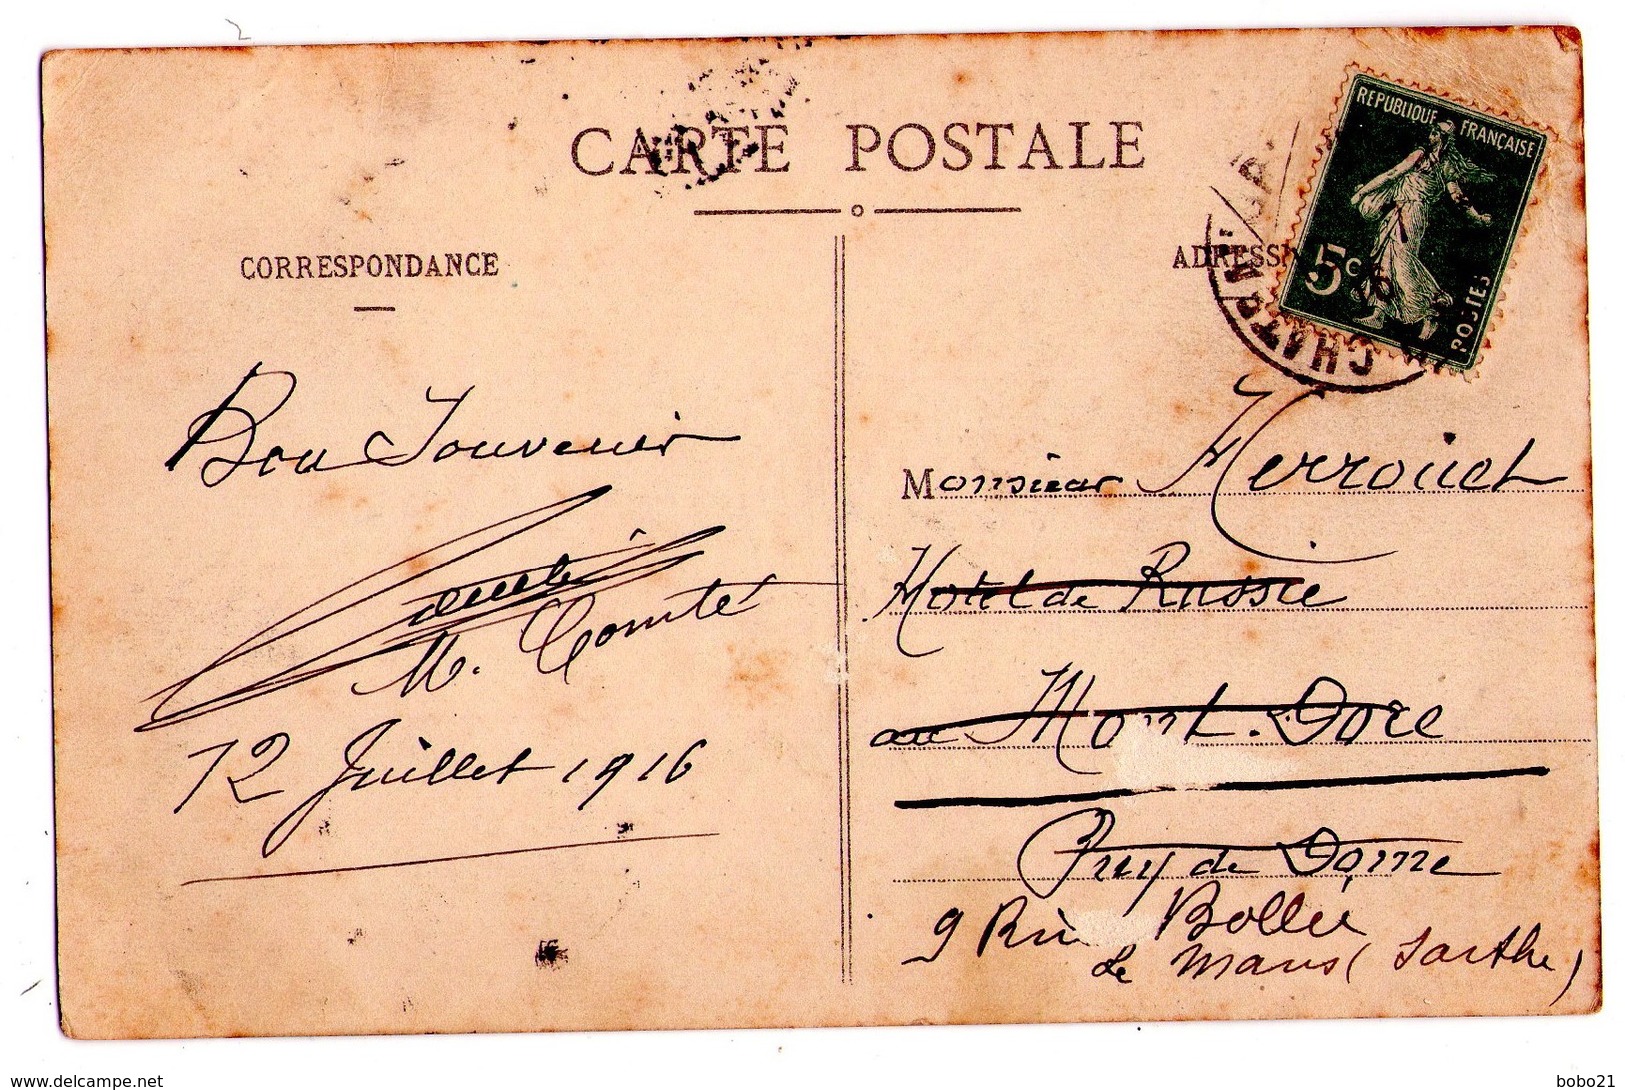 CARTE POSTALE
CORRESPONDANCE
ADRESS
REPUBLIQUE FRANÇAISE
5c
POSTES
Bon Souvenir
M. Comte
12 Juillet 1916
Monsieur
Hotel de Russie
au Mont-Dore
Puy de Dome
9 Rue Bollée
Le Mans (Sarthe)
www.delcampe.net
bobo21